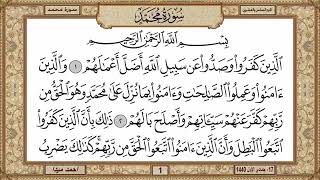 سورة محمد
سُورَةُ مُحَمَّد
بِسْمِ اللَّهِ الرَّحْمَٰنِ الرَّحِيمِ
الَّذِينَ كَفَرُوا وَصَدُّوا عَن سَبِيلِ اللَّهِ أَضَلَّ أَعْمَالَهُمْ ١ وَالَّذِينَ
ءَامَنُوا وَعَمِلُوا الصَّالِحَاتِ وَءَامَنُوا بِمَا نُزِّلَ عَلَىٰ مُحَمَّدٍ وَهُوَ الْحَقُّ مِن
رَّبِّهِمْ كَفَّرَ عَنْهُمْ سَيِّئَاتِهِمْ وَأَصْلَحَ بَالَهُمْ ٢ ذَٰلِكَ بِأَنَّ الَّذِينَ كَفَرُوا
اتَّبَعُوا الْبَاطِلَ وَأَنَّ الَّذِينَ ءَامَنُوا اتَّبَعُوا الْحَقَّ مِن رَّبِّهِمْ كَذَٰلِكَ يَضْرِبُ
1440
1